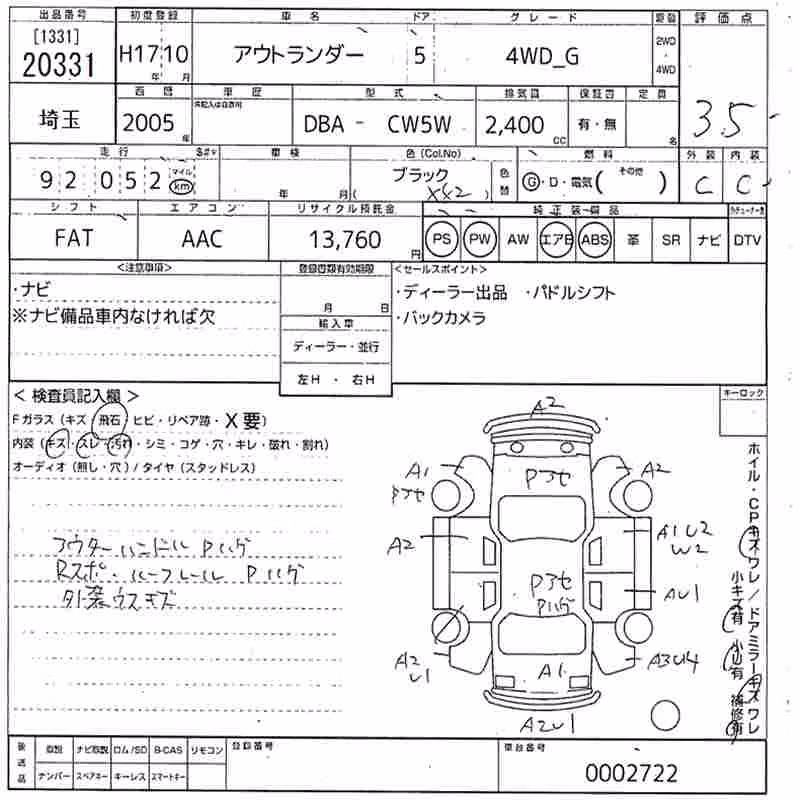 出品番号 初度登録 車名 ドア グレード 駆動 評価点
[1331]
20331 H17 10 アウトランダー 5 4WD_G 2WD ・ 4WD 3.5
年 月
西暦 車歴 型式 排気量 保証書 定員
埼玉 2005年 DBA - CW5W 2,400cc 有・無 名
走行 車検 色(Col.No) 燃料 外装 内装
92 052 マイル km 年 月 ブラック (X42) 色替 G・D・電気( その他 ) C C
シフト エアコン リサイクル預託金 純正装備品
FAT AAC 13,760円 PS PW AW エアB ABS 革 SR ナビ DTV
<注意事項> 登録書類有効期限 <セールスポイント>
・ナビ ・ディーラー出品 ・パドルシフト
※ナビ備品車内なければ欠 月 日 ・バックカメラ
輸入車
ディーラー・並行
左H ・ 右H
< 検査員記入欄 > キーロック
Fガラス (キズ・飛石・ヒビ・リペア跡・X要)
内装 (キズ・スレ・汚れ・シミ・コゲ・穴・キレ・破れ・割れ)
オーディオ (無し・穴) / タイヤ (スタッドレス)
アウターハンドル Pハゲ
Rスポ・ルーフレール Pハゲ
外装ウスキズ
A2
A1 Pフセ A2
Pフセ
A2 A1U2
W2
Pフセ AU1
Pハゲ
A2 A1 A3U4
U1
A2U1
ホイル・CPキズワレ/ドアミラーキズワレ
小キズ有 小凹有 補修有
後送品 取説 ナビ取説 ロム/SD B-CAS リモコン 登録番号 車台番号
ナンバー スペアキー キーレス スマートキー 0002722